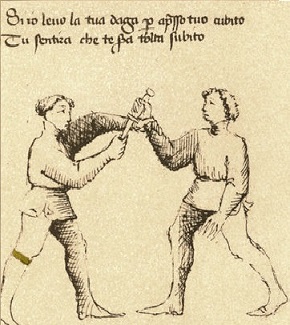 Si io levo la tua daga ꝑ ap̄sso tuo cubito
Tu sentira che te s̄ra tolta subito